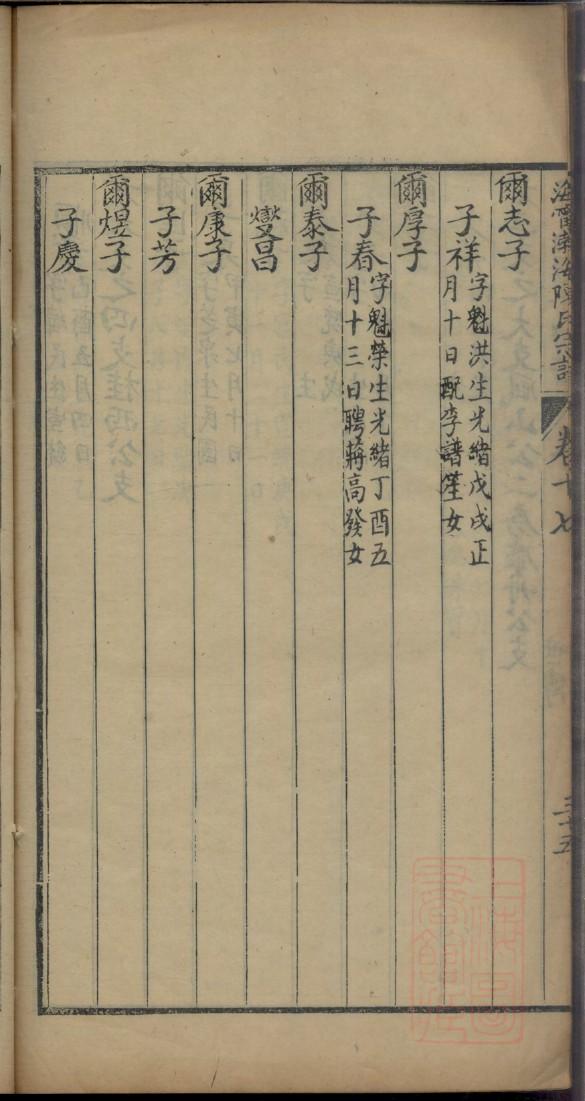 海寧渤海陳氏宗譜 卷十七 三十五
爾志子
子祥 字魁洪生光緒戊戌正
月十日配李譜笙女
爾厚子
子春 字魁榮生光緒丁酉五
月十三日聘蔣高發女
爾泰子
燮昌
爾康子
子芳
爾煜子
子慶